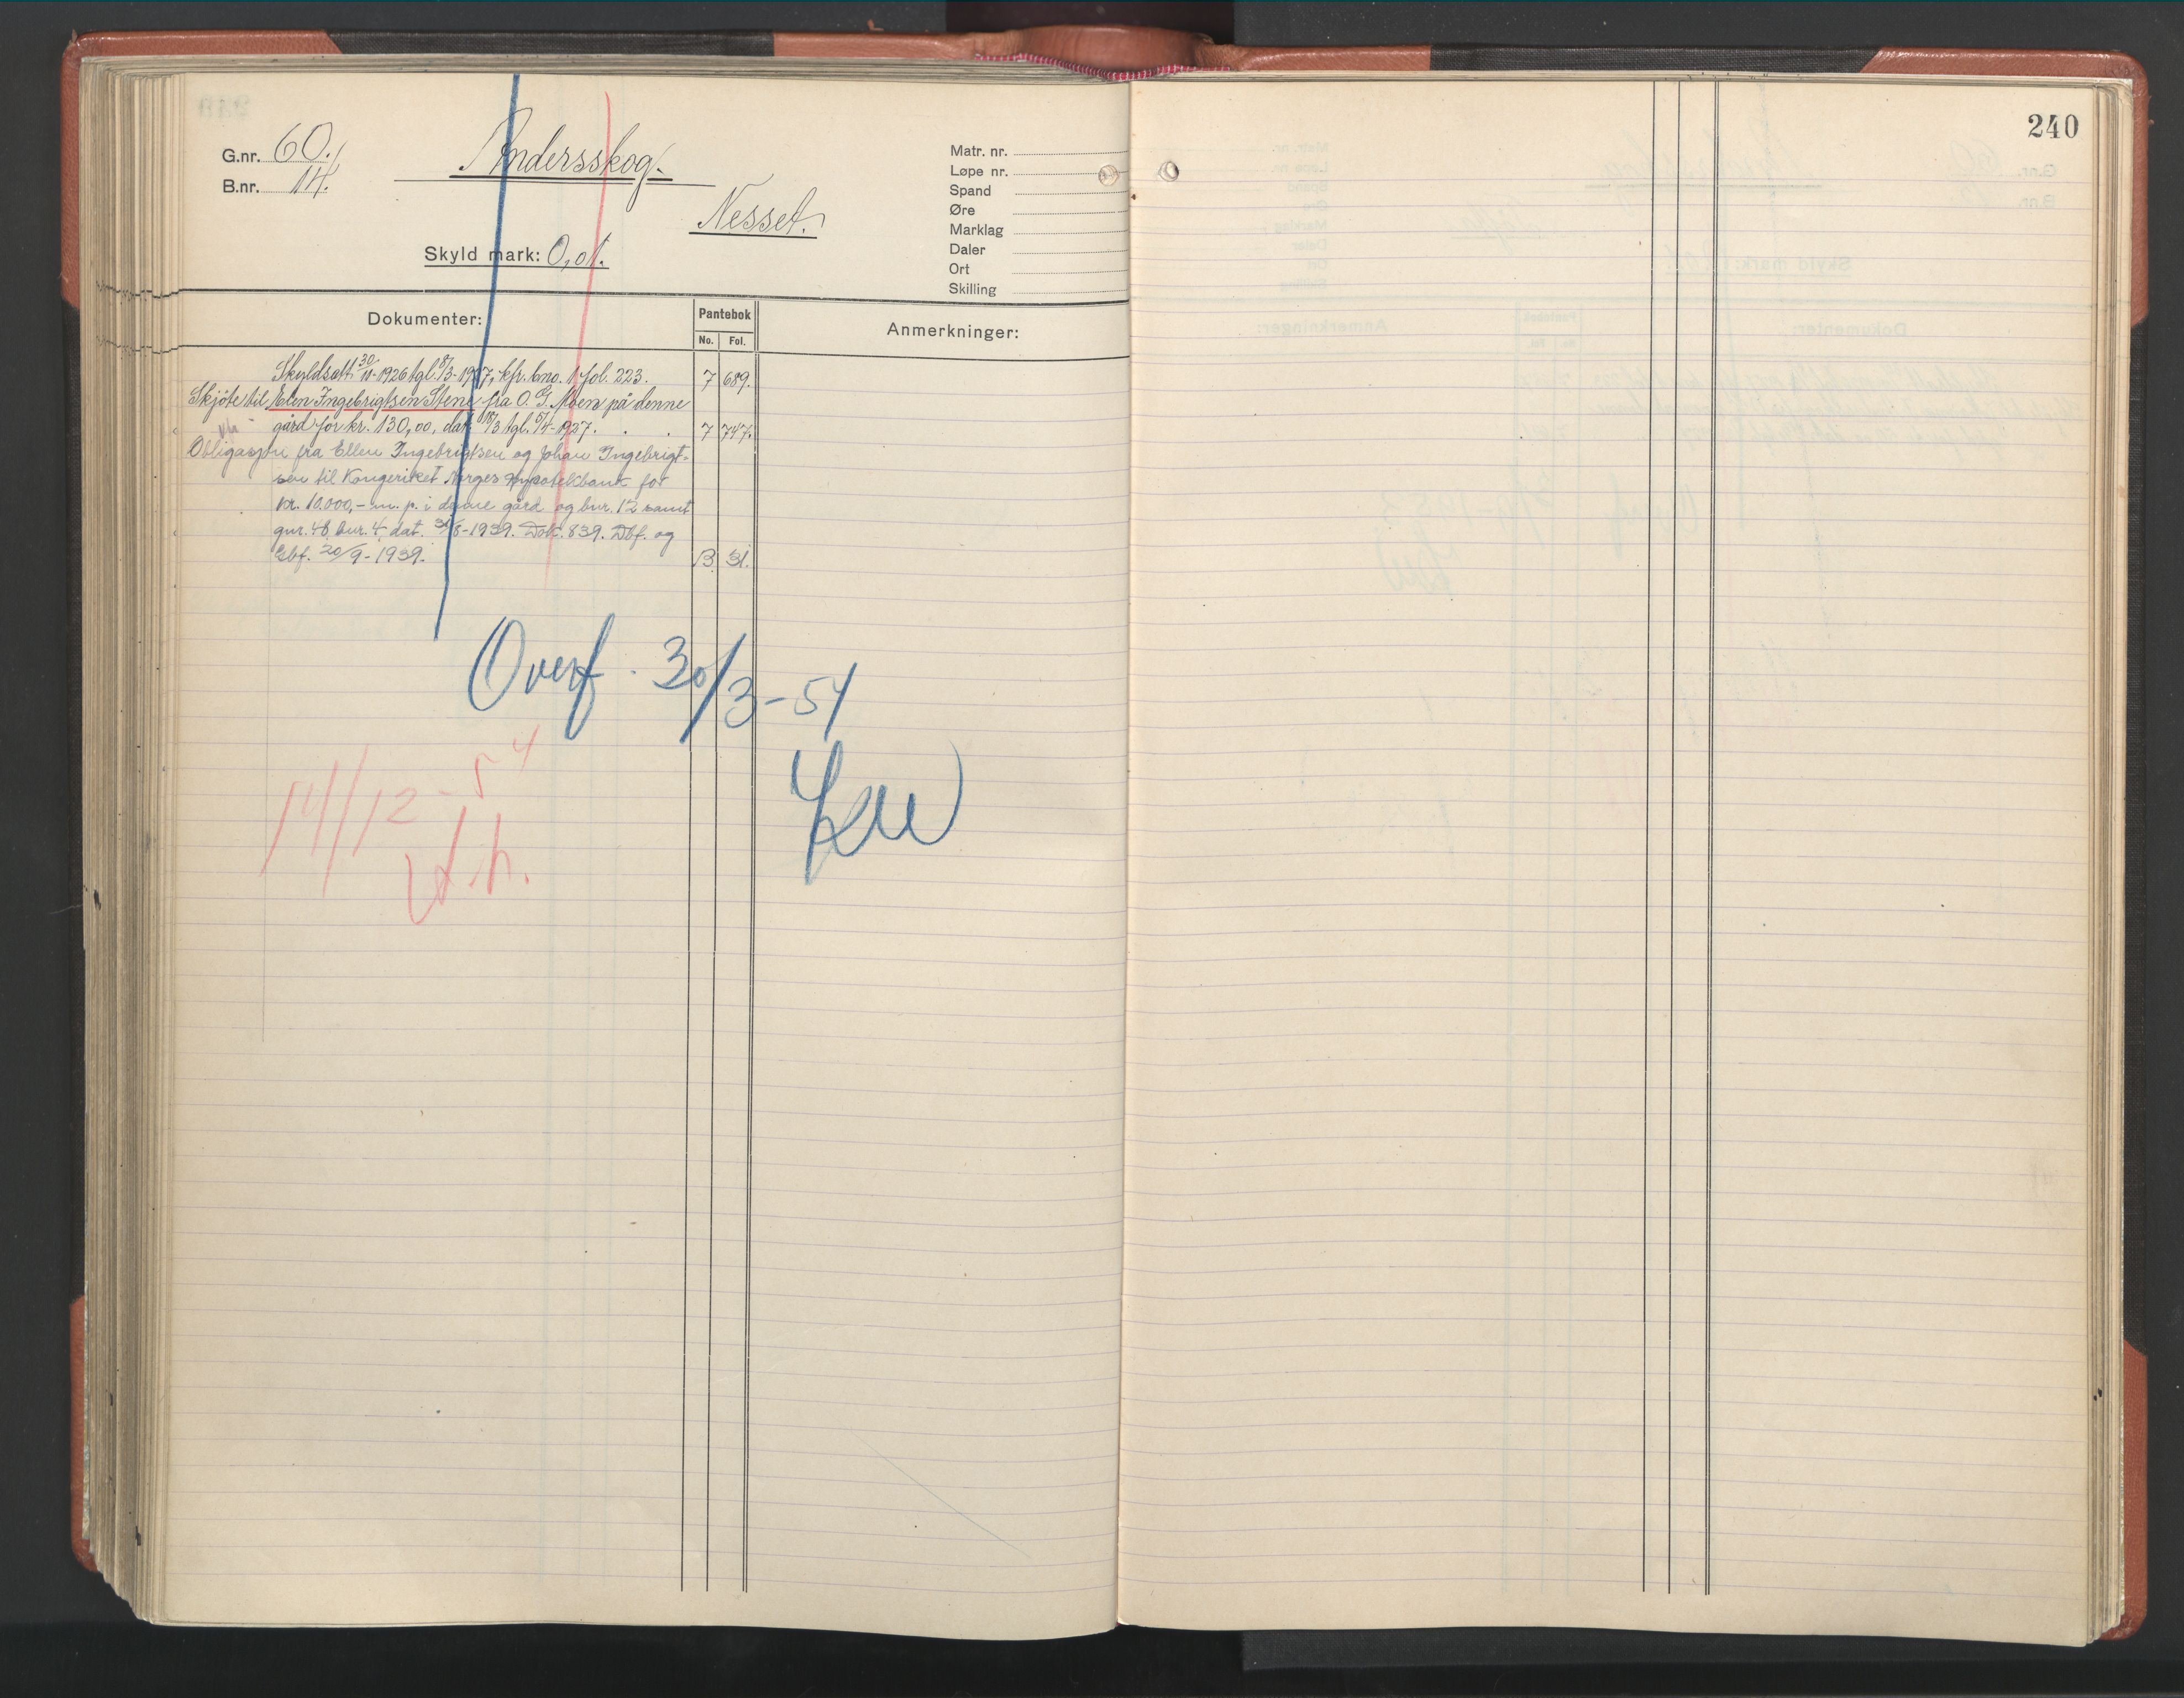 240
G.nr. 60.
B.nr. 14.
Andersskog.
Nesset.
Skyld mark: 0,01.
Matr. nr.
Løpe nr.
Spand
Øre
Marklag
Daler
Ort
Skilling
Dokumenter:
Pantebok
No. Fol.
Anmerkninger:
Skyldsatt 30/11-1926 tgl. 8/3-1927, kfr. bno. 1 fol. 223. 7 689.
Skjöte til Elen Ingebrigtsen Stene fra O. G. Moen på denne
gård for kr. 130,00, dat. 18/3 tgl. 5/4-1927. 7 747.
Obligasjon fra Ellen Ingebrigtsen og Johan Ingebrigt-
sen til Kongeriket Norges Hypotekbank for
kr. 10.000,- m. p. i denne gård og bnr. 12 samt
gnr. 48 bnr. 4, dat. 31/8-1939. Dok. 839. Dbf. og
Gbf. 20/9-1939. B. 31.
Overf. 30/3-54
14/12-54